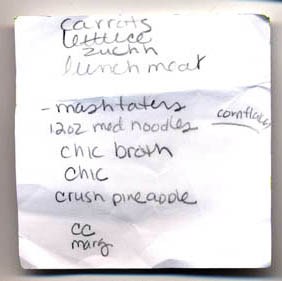 carrots
lettuce
zuchh
lunch meat
- mash taters
12oz med noodles
cornflakes
chic broth
chic
crush pineapple
cc
marg